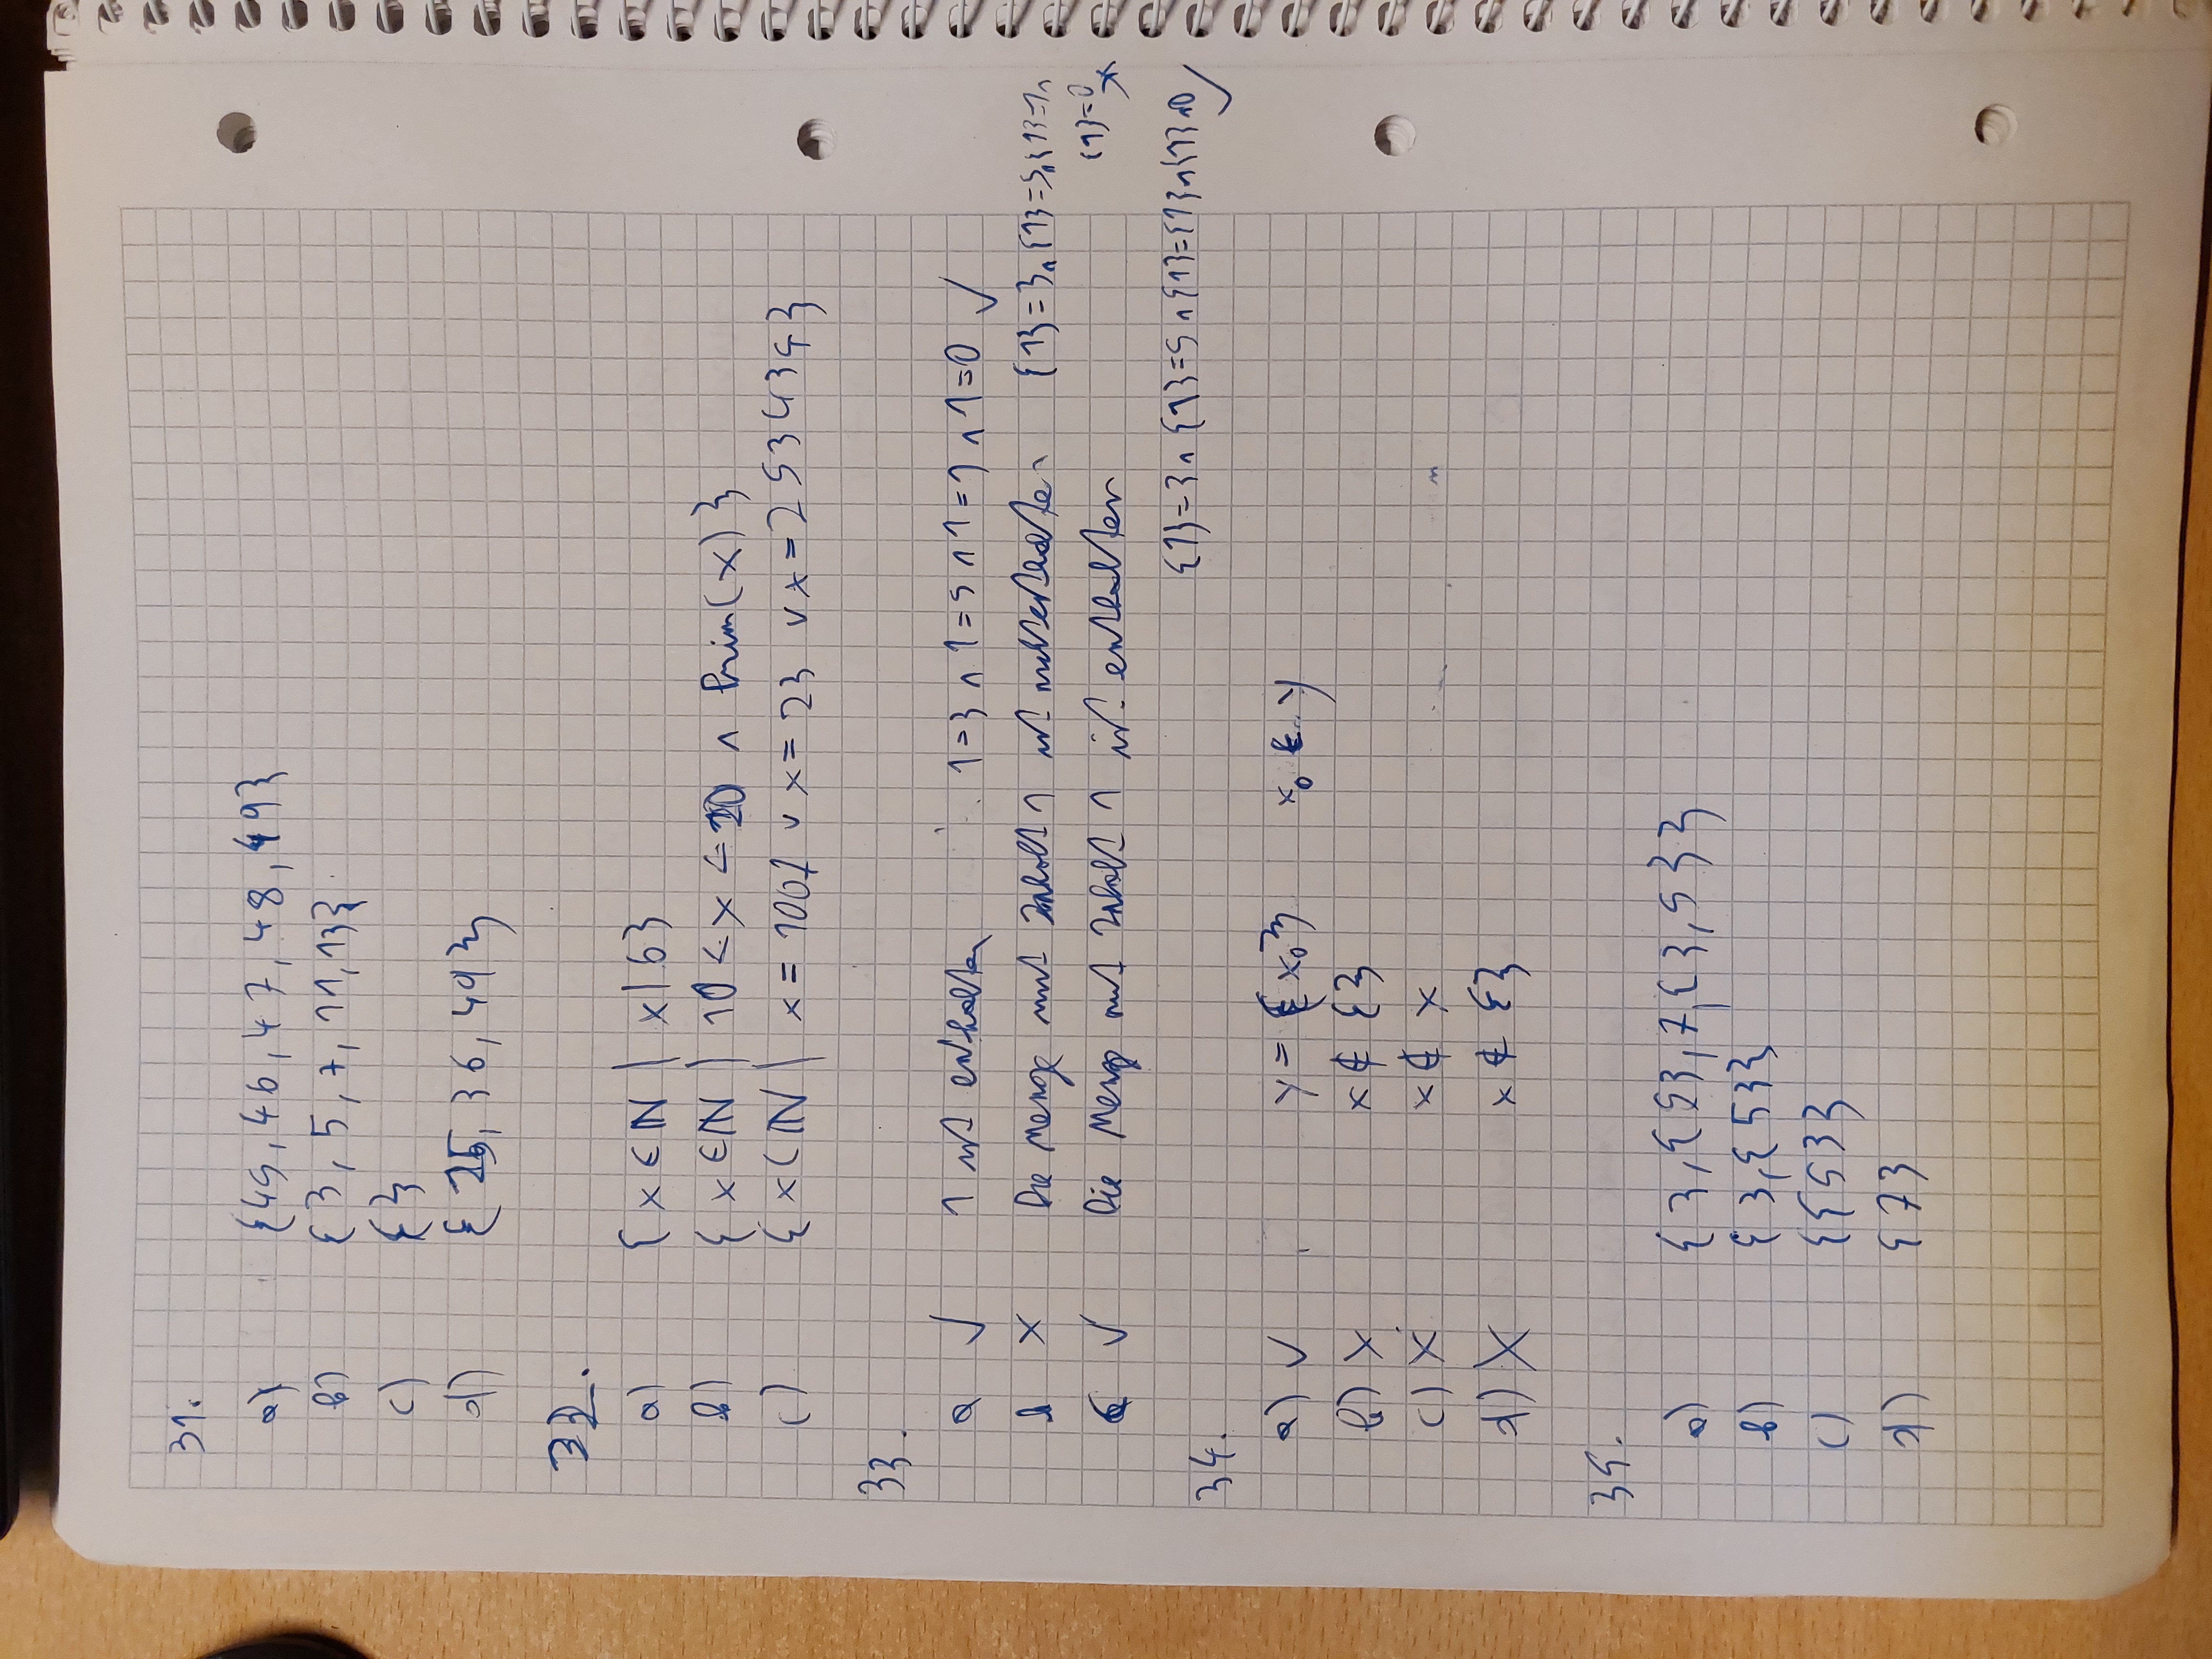 31.
a) {45, 46, 47, 48, 49}
b) {3, 5, 7, 11, 13}
c) {}
d) {25, 36, 49}
32.
a) {x ∈ ℕ | x | 6}
b) {x ∈ ℕ | 10 < x < 20 ∧ Prim(x)}
c) {x ∈ ℕ | x = 1001 ∨ x = 23 ∨ x = 2534345}
33.
a ✓ 1 ist enthalten 1=3 ∧ 1=5 ∧ 1=1 ∧ 1=0 ✓
b × Die Menge mit Inhalt 1 ist nicht enthalten {1}=3 ∧ {1}=5 ∧ {1}=1 ∧
{1}=0 ×
c ✓ Die Menge mit Inhalt 1 ist enthalten
{1}=3 ∧ {1}=5 ∧ {1}={1} ∧ {1} ∧ 0 ✓
34.
a) ✓ y = {x₀} x₀ ∈ y
b) × x ∉ {}
c) × x ∉ x
d) × x ∉ {}
35.
a) {3, {5}, 7, {3, 5}}
b) {3, {5}}
c) {{5}}
d) {7}